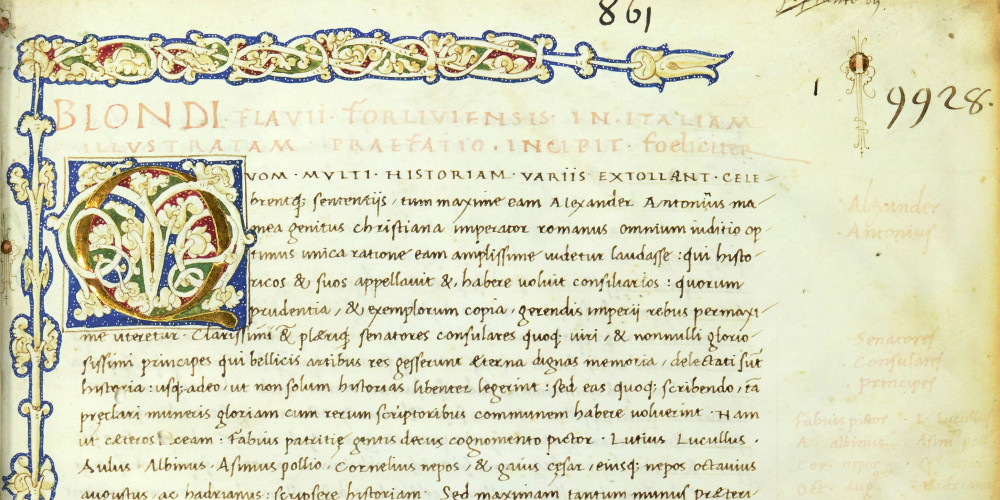 861
1
9928.
BLONDI · FLAVII · FORLIVIENSIS · IN · ITALIAM
ILLUSTRATAM · PRAEFATIO · INCIPIT · foeliciter
QVOM · MVLTI · HISTORIAM · VARIIS EXTOLLANT · CELE-
brentq; sententijs, tum maxime eam Alexander Antonijus ma-
mea genitus christiana imperator romanus omnium iuditio op-
timus unica ratione eam amplissime uidetur laudasse : qui histo-
ricos & suos appellauit &, habere uoluit consiliarios : quorum
prudentia, & exemplorum copia, gerendis imperij rebus permaxi-
me uteretur. Clarissimi & plæriq; senatores consulares quoq; uiri, & nonnulli glorio-
sissimi principes qui bellicis artibus res gesserunt æterna dignas memoria, delectati sūt
historia : usq; adeo, ut non solum historias libenter legerint : sed eas quoq; scribendo, tā
pręclari muneris gloriam cum rerum scriptoribus communem habere uoluerint. Nam
ut cæteros taceam : Fabius patritię gentis decus cognomento pictor. Lutius Lucullus.
Aulus Albinus. Asinius pollio, Cornelius nepos, & gaius cęsar, eiusq; nepos octauius
augustus, ac hadrianus : scripsere historiam. Sed maximam tantum munus præteri-
Alexander
Antonius
Senatores
Consulares
principes
Fabius pictor L. Lucullus
A. albinus Asini poll
Cor. nepo
Oct. aug. Adriano